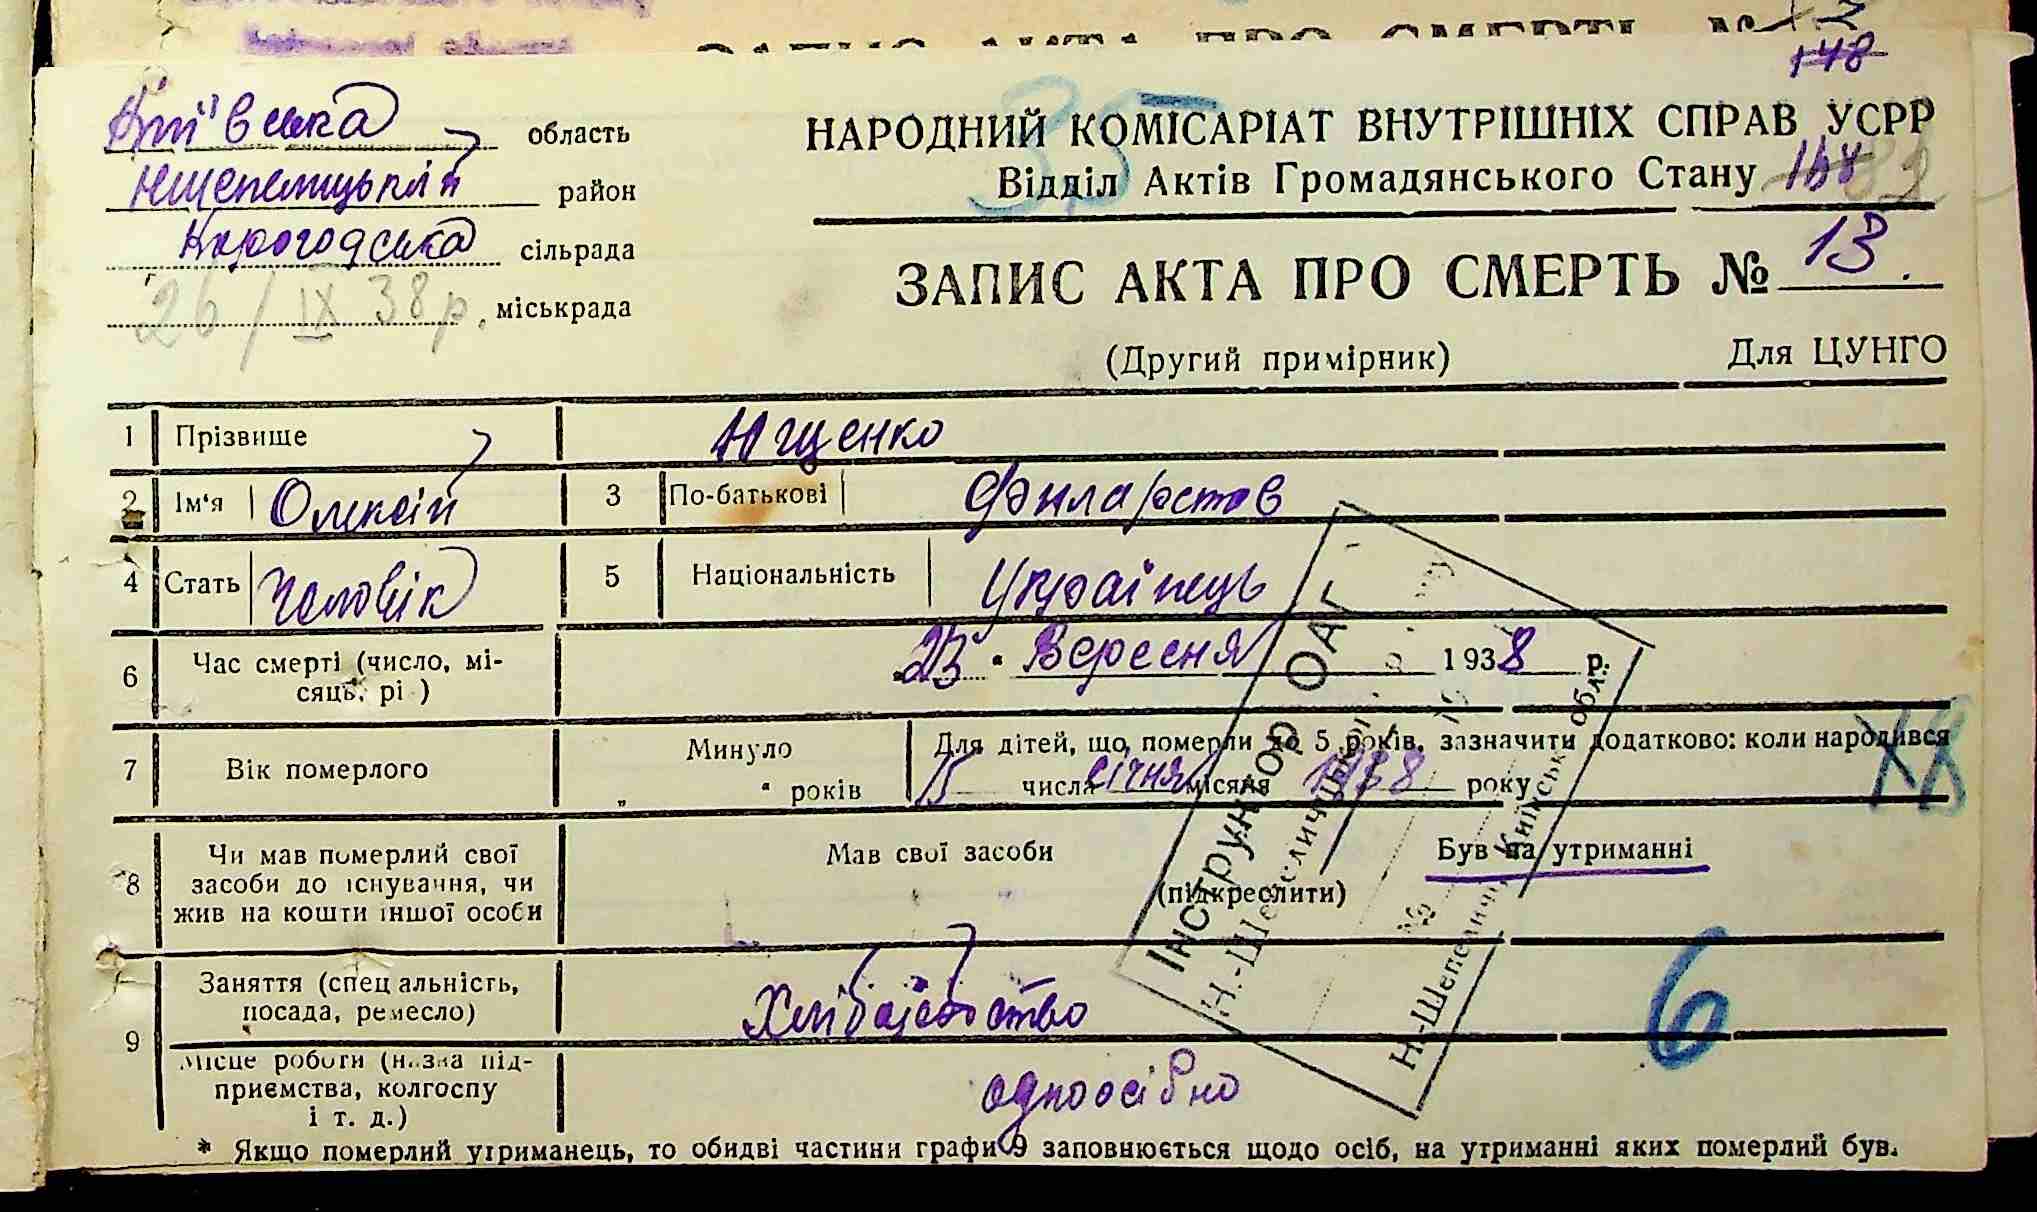 148
Київська область
Н шепелицький район
Корогодська сільрада
26/IX 38 р. міськрада
НАРОДНИЙ КОМІСАРІАТ ВНУТРІШНІХ СПРАВ УСРР
Відділ Актів Громадянського Стану
35
ЗАПИС АКТА ПРО СМЕРТЬ № 13.
(Другий примірник) Для ЦУНГО
1 Прізвище Ющенко
2 Ім'я Олексій 3 По-батькові Филаретов
4 Стать Чоловік 5 Національність Українець
6 Час смерті (число, мі-
сяць, рі ) 23 Вересня 1938 р.
7 Вік померлого Минуло
„ " років
Для дітей, що померли до 5 років, зазначити додатково: коли народився
15 числа січня місяця 1938 року
8 Чи мав померлий свої
засоби до існування, чи
жив на кошти іншої особи
Мав свої засоби Був на утриманні
(підкреслити)
9 Заняття (спец альність,
посада, ремесло) Хлібороботство
Місце роботи (назва під-
приємства, колгоспу
і т. д.) одноосібно
6
* Якщо померлий утриманець, то обидві частини графи 9 заповнюється щодо осіб, на утриманні яких померлий був.
Інструктор ОАГ
Н.-Шепелич
Н-Шепелич Київськ обл.